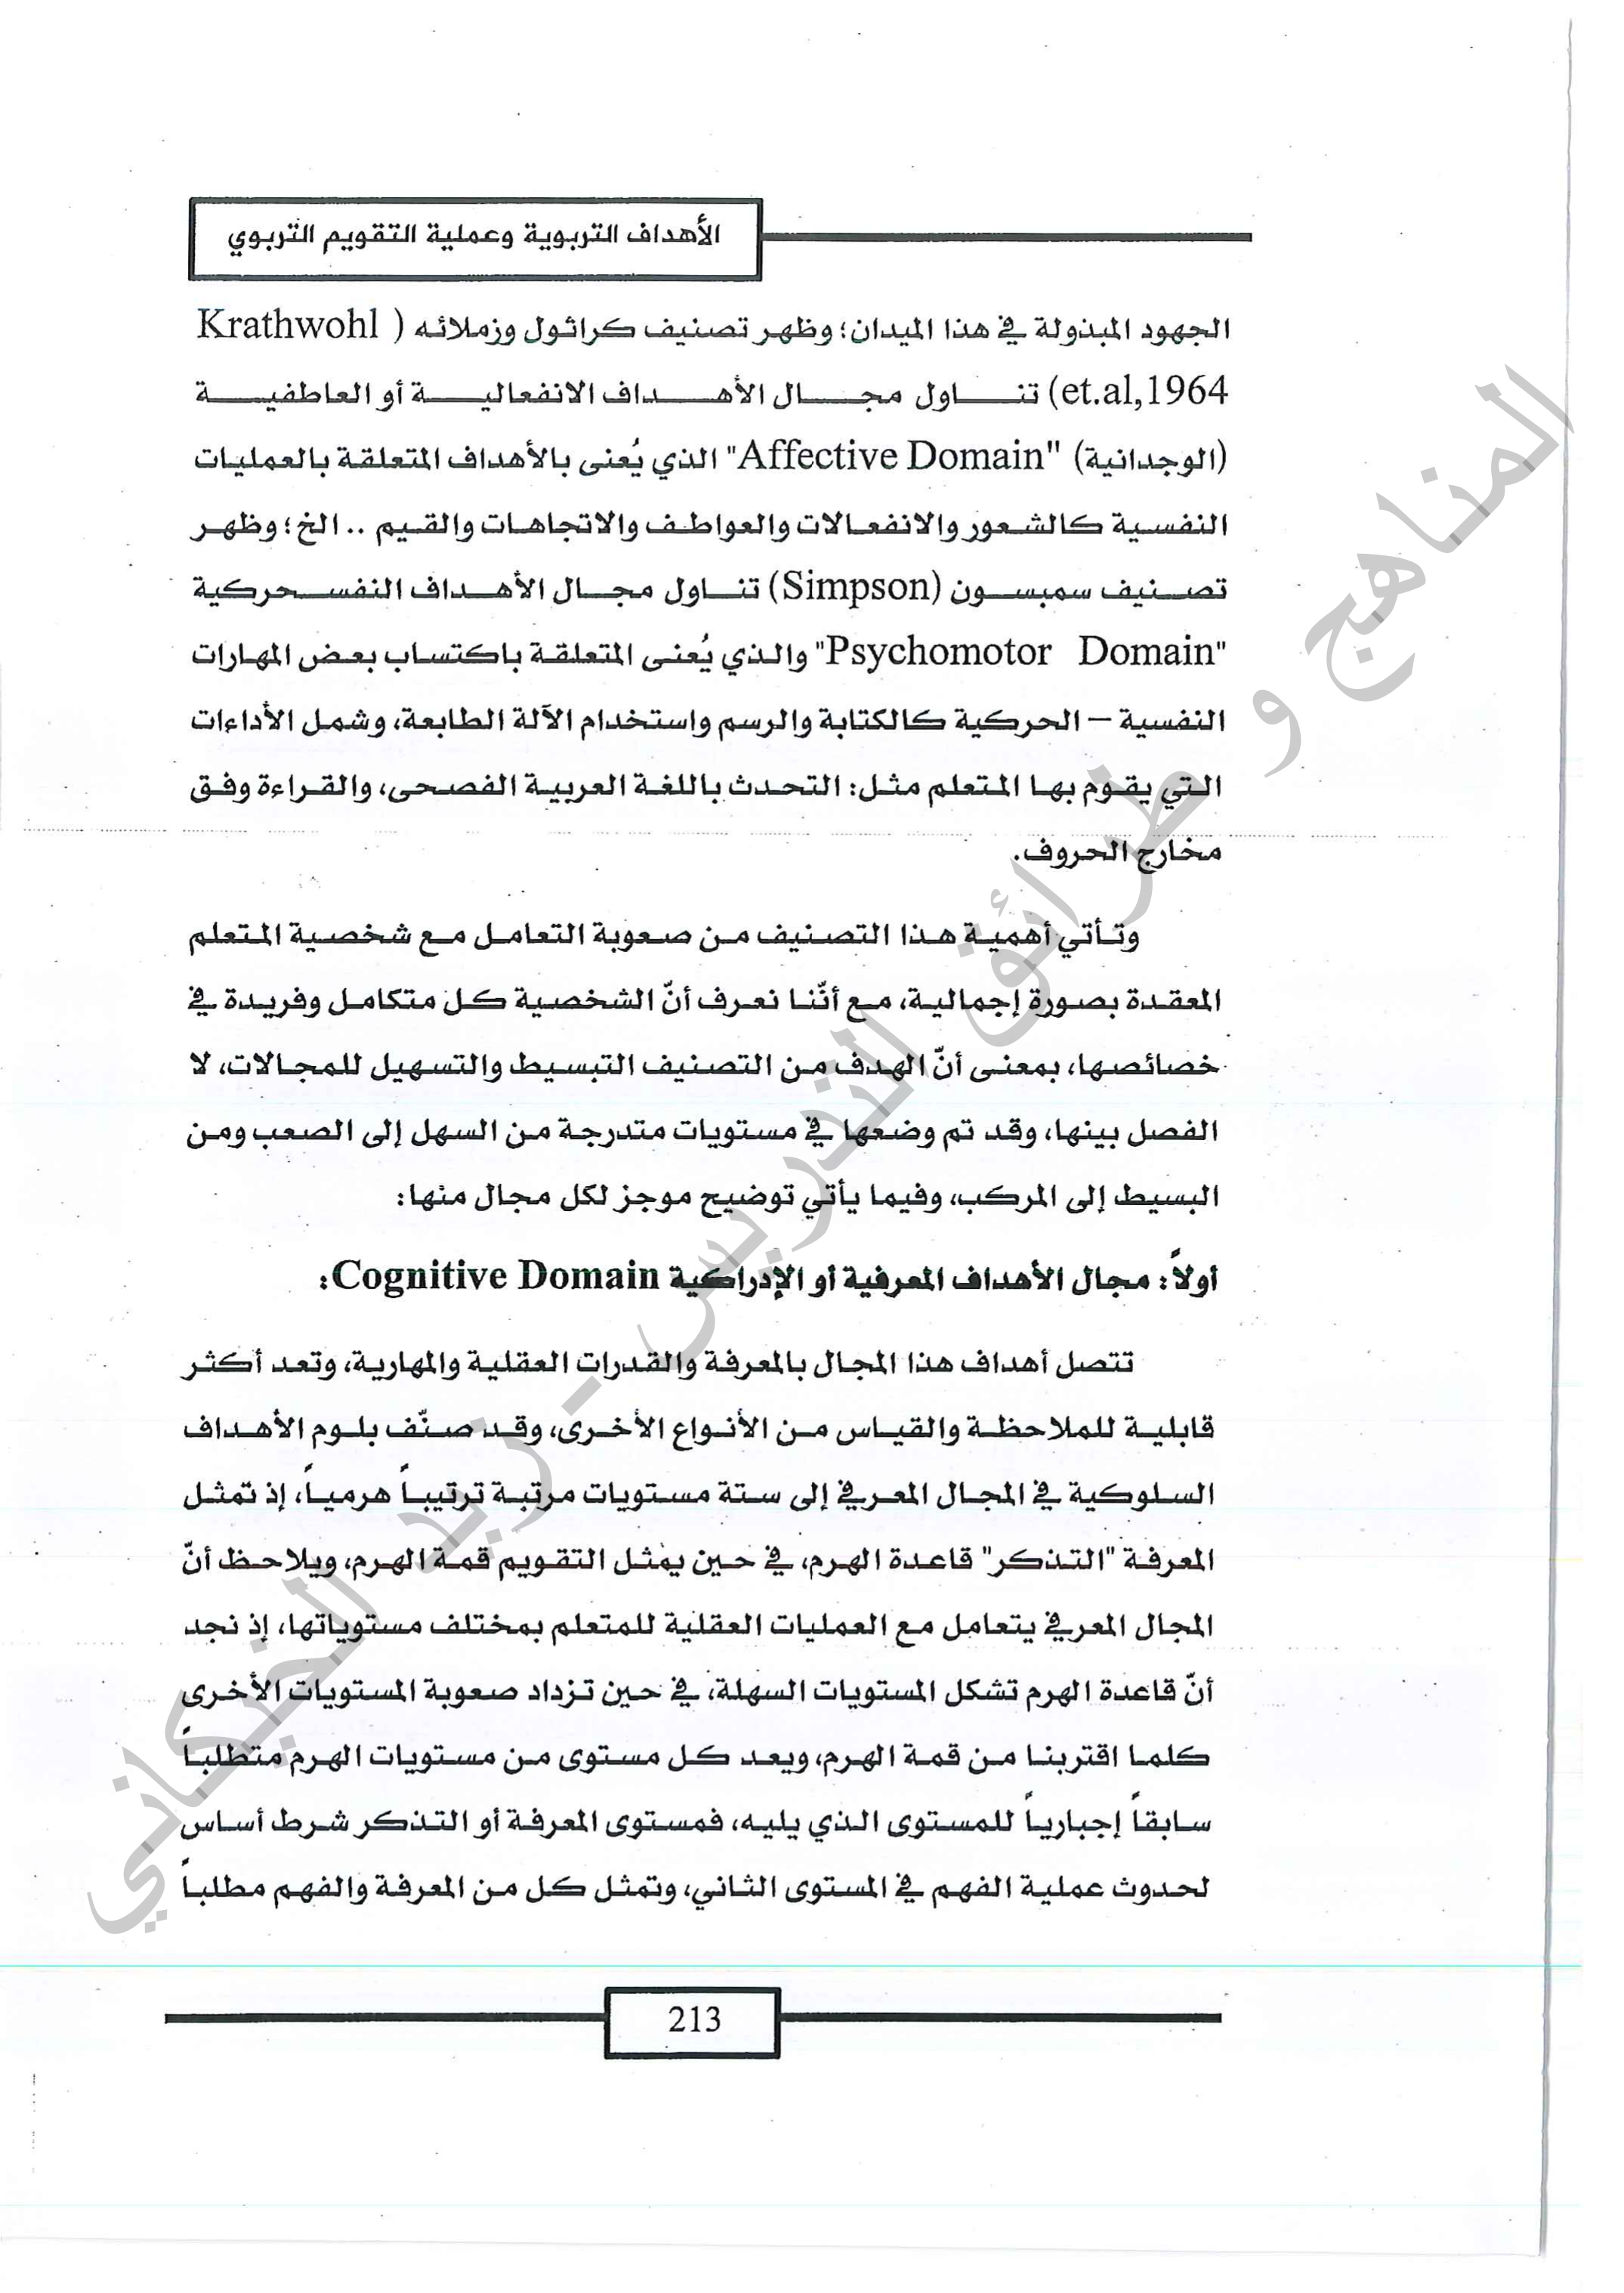 الأهداف التربوية وعملية التقويم التربوي
الجهود المبذولة في هذا الميدان؛ وظهر تصنيف كراثول وزملائه ( Krathwohl
et.al,1964) تناول مجال الأهداف الانفعالية أو العاطفية
(الوجدانية) "Affective Domain" الذي يُعنى بالأهداف المتعلقة بالعمليات
النفسية كالشعور والانفعالات والعواطف والاتجاهات والقيم .. الخ؛ وظهر
تصنيف سمبسون (Simpson) تناول مجال الأهداف النفسحركية
"Psychomotor Domain" والذي يُعنى المتعلقة باكتساب بعض المهارات
النفسية – الحركية كالكتابة والرسم واستخدام الآلة الطابعة، وشمل الأداءات
التي يقوم بها المتعلم مثل: التحدث باللغة العربية الفصحى، والقراءة وفق
مخارج الحروف.
وتأتي أهمية هذا التصنيف من صعوبة التعامل مع شخصية المتعلم
المعقدة بصورة إجمالية، مع أنّنا نعرف أنّ الشخصية كل متكامل وفريدة في
خصائصها، بمعنى أنّ الهدف من التصنيف التبسيط والتسهيل للمجالات، لا
الفصل بينها، وقد تم وضعها في مستويات متدرجة من السهل إلى الصعب ومن
البسيط إلى المركب، وفيما يأتي توضيح موجز لكل مجال منها:
أولاً: مجال الأهداف المعرفية أو الإدراكية Cognitive Domain:
تتصل أهداف هذا المجال بالمعرفة والقدرات العقلية والمهارية، وتعد أكثر
قابلية للملاحظة والقياس من الأنواع الأخرى، وقد صنّف بلوم الأهداف
السلوكية في المجال المعرفي إلى ستة مستويات مرتبة ترتيباً هرمياً، إذ تمثل
المعرفة "التذكر" قاعدة الهرم، في حين يمثل التقويم قمة الهرم، ويلاحظ أنّ
المجال المعرفي يتعامل مع العمليات العقلية للمتعلم بمختلف مستوياتها، إذ نجد
أنّ قاعدة الهرم تشكل المستويات السهلة، في حين تزداد صعوبة المستويات الأخرى
كلما اقتربنا من قمة الهرم، ويعد كل مستوى من مستويات الهرم متطلباً
سابقاً إجبارياً للمستوى الذي يليه، فمستوى المعرفة أو التذكر شرط أساس
لحدوث عملية الفهم في المستوى الثاني، وتمثل كل من المعرفة والفهم مطلباً
213
المناهج و طرائق التدريس - زيد الخيكاني